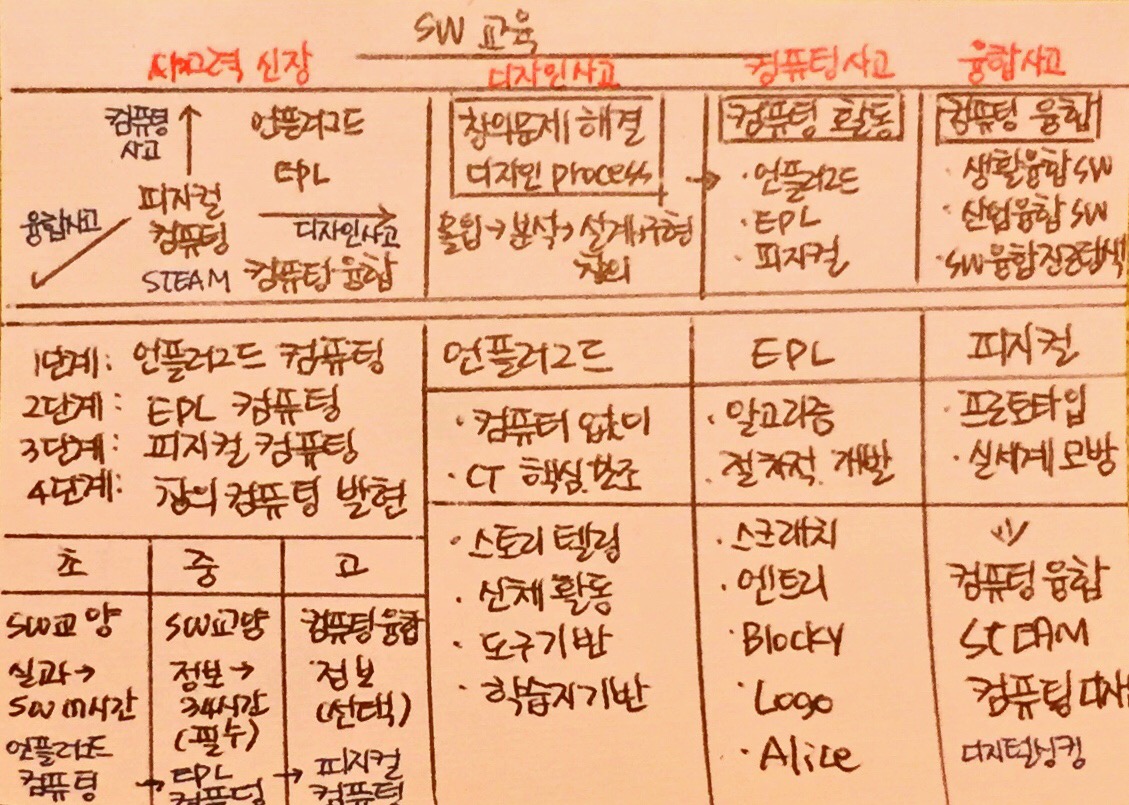 SW 교육
사고력 신장
디자인사고
컴퓨팅사고
융합사고
컴퓨팅
사고
언플러그드
EPL
피지컬
컴퓨팅
융합사고
디자인사고
STEAM 컴퓨팅 융합
창의문제 해결
디자인 process
몰입→분석→설계→구현
창의
컴퓨팅 활동
· 언플러그드
· EPL
· 피지컬
컴퓨팅 융합
· 생활융합 SW
· 산업융합 SW
1단계: 언플러그드 컴퓨팅
2단계: EPL 컴퓨팅
3단계: 피지컬 컴퓨팅
4단계: 창의 컴퓨팅 발현
초
중
고
SW교양
실과→
SW 17시간
언플러그드
컴퓨팅
→
SW교양
정보→
34시간
(필수)
EPL
컴퓨팅
→
컴퓨팅융합
· 정보
(선택)
피지컬
컴퓨팅
언플러그드
· 컴퓨터 없이
· CT 핵심.
· 스토리텔링
· 신체 활동
· 도구기반
· 학습지기반
EPL
· 알고리즘
절차적. 개발
· 스크래치
· 엔트리
· Blocky
· Logo
· Alice
피지컬
· 프로토타입
· 실세계 모방
컴퓨팅 융합
STEAM
컴퓨팅
디지털싱킹